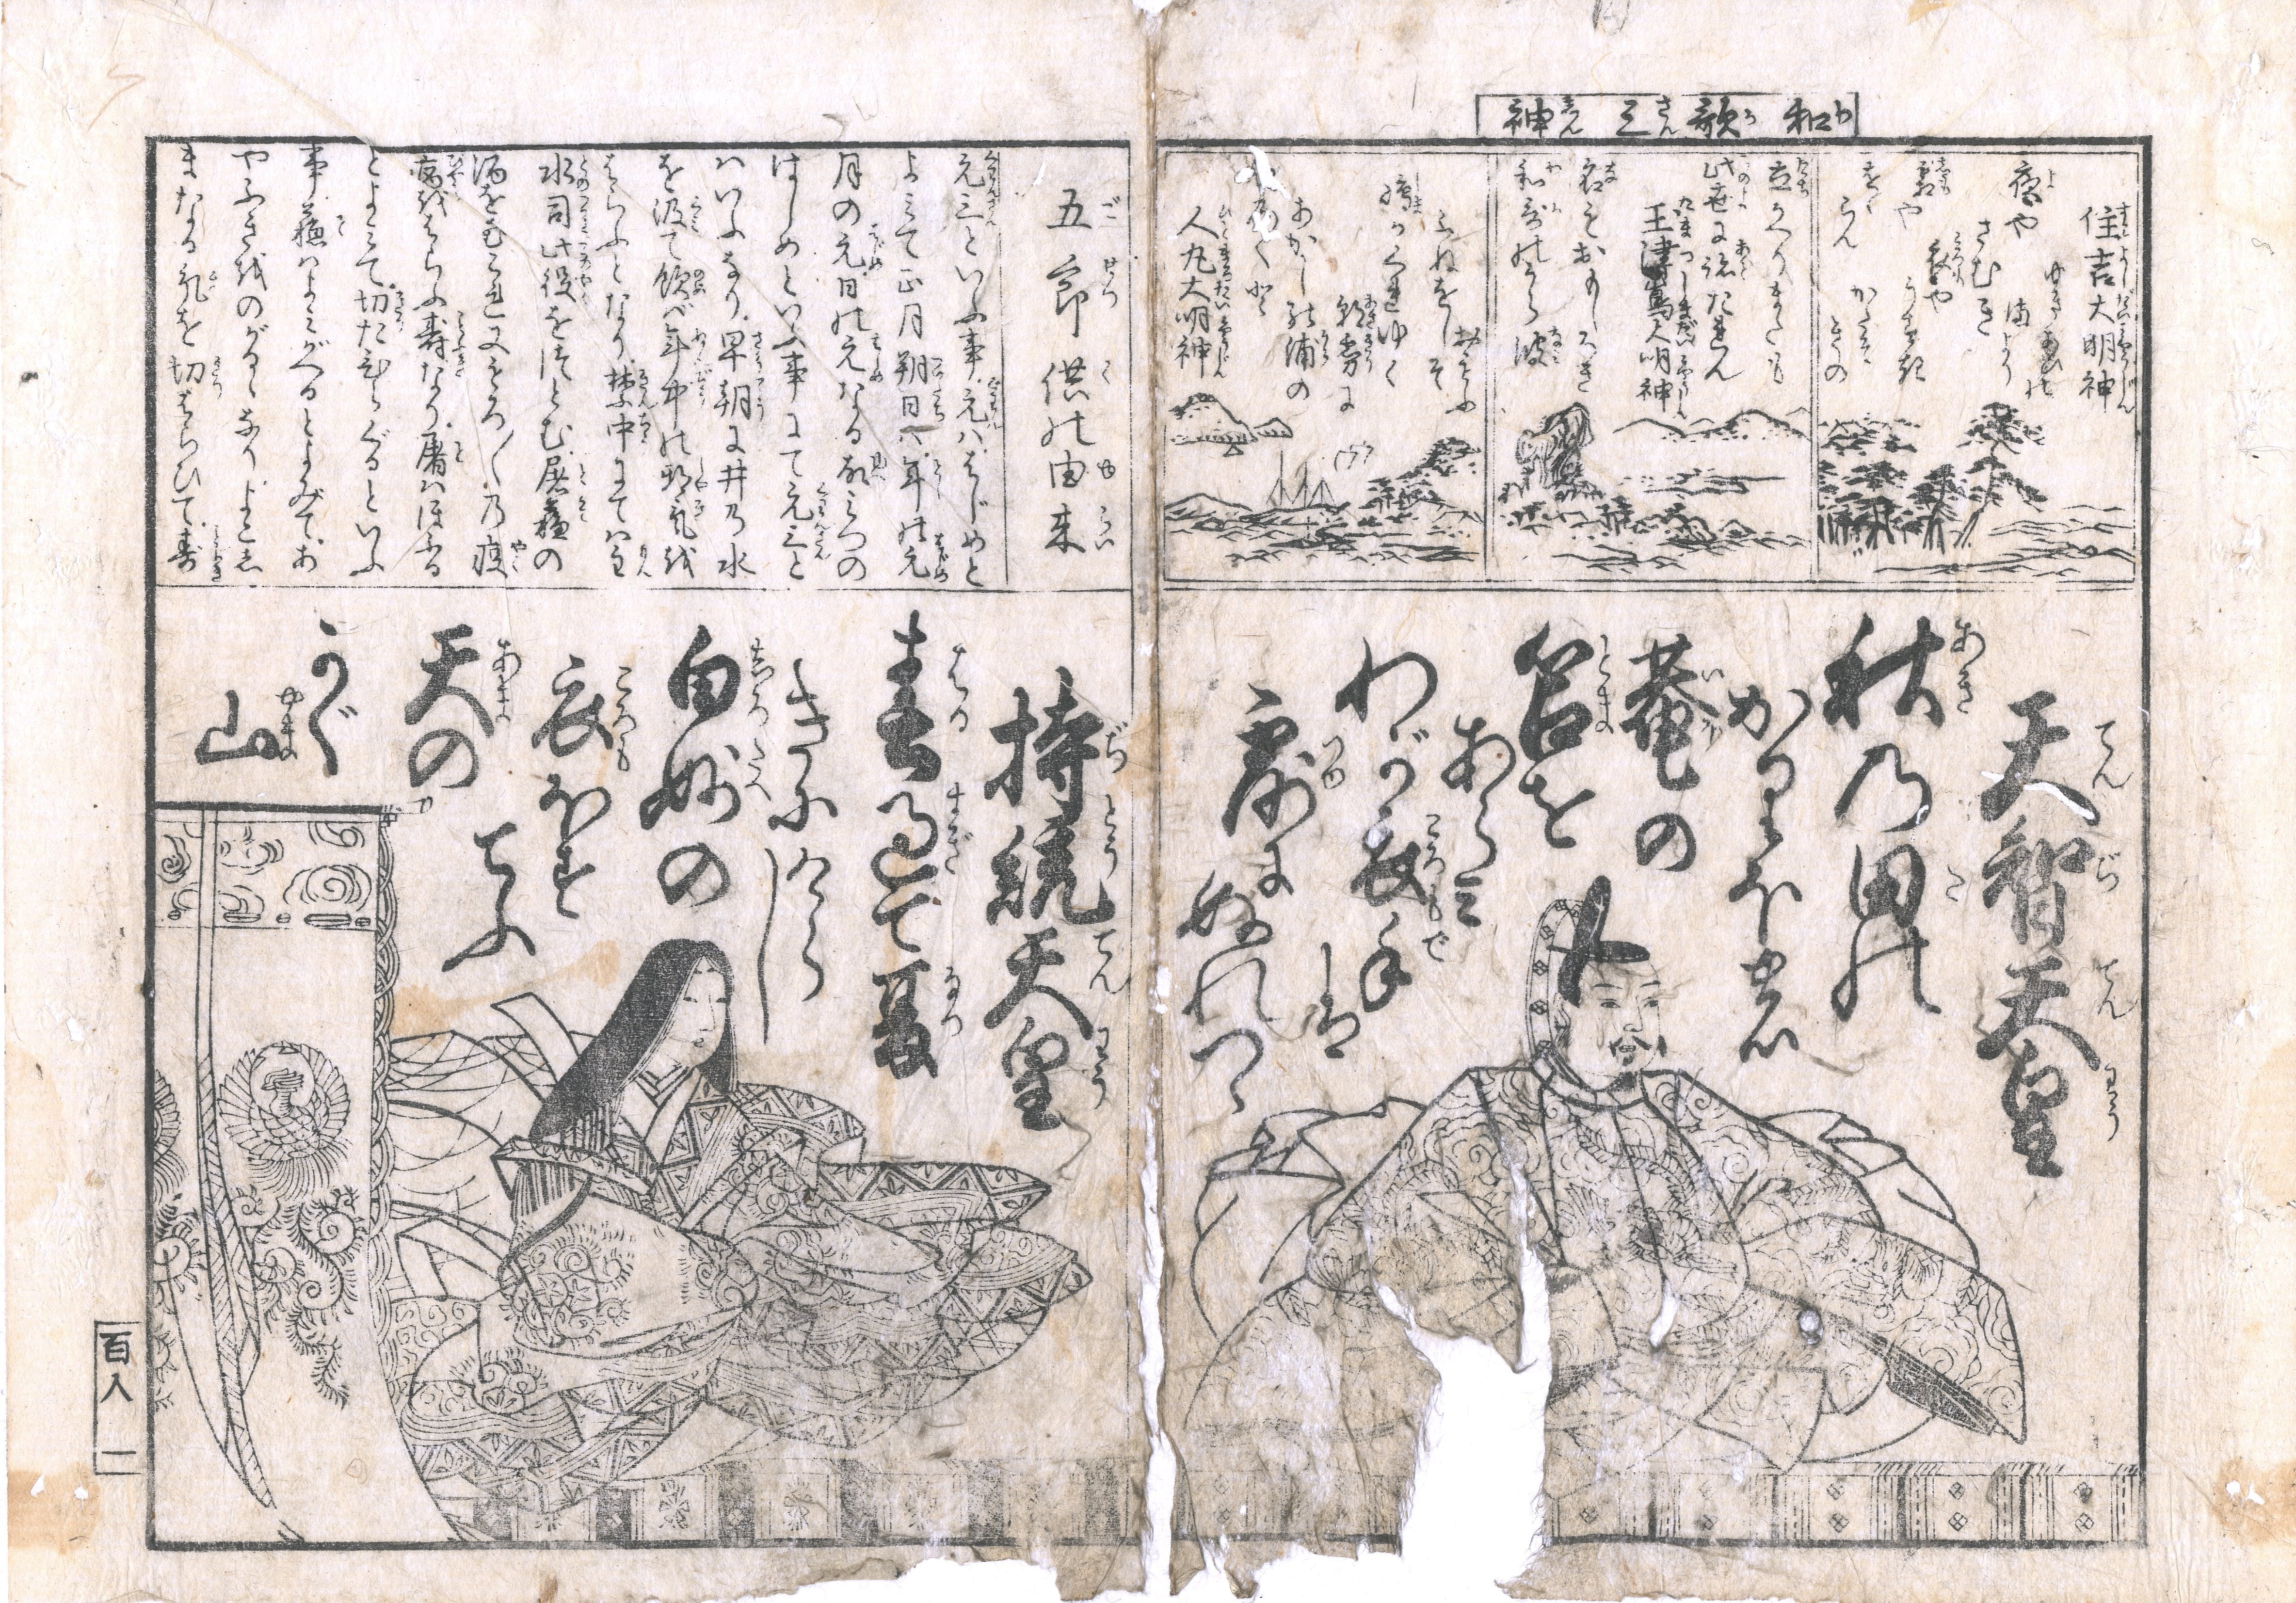 和歌三神
住吉大明神
夜や
さむき
衣や
うすき
かたそ
きの
玉津嶋大明神
立かへりまたも
此世に跡たれん
名もおもしろき
和哥のうら波
人丸大明神
あかしの浦の
朝霧に
嶋かくれゆく
ふねをしそ
おもふ
天智天皇
秋乃田の
かりほの
庵の
苫を
あらみ
わが衣手
は
露に
ぬれつゝ
五節供の由来
元三といふ事元ハはじめと
よミて正月朔日ハ年の元
月の元日の元なる故ミつの
はじめといふ事にて元三と
ハいふなり早朝に井乃水
を汲て飲バ年中の邪気を
はらふとなり禁中にてハ主
水司此役をつとむ屠蘇の
酒をもこれにそろ〳〵乃疫
病をはらふ寿なり屠ハほふる
とよミて切たひらぐるといふ
事蘇ハよミがへるとよみてあ
やふきをのがるゝなりよこし
まなる気を切はらひて寿
持統天皇
春過て夏
きにけらし
白妙の
衣ほす
てふ
天の
かぐ
山
百人 一